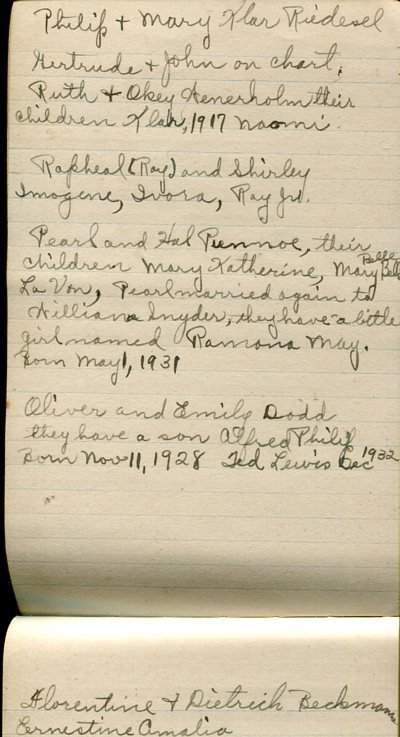 Philip + Mary Klar Riedesel
Gertrude + John on chart.
Ruth + Okey Henerholm their
children Klar, 1917 Naomi.
Rapheal (Ray) and Shirley
Imogene, Ivora, Ray Jr.
Pearl and Hal Punnoe, their
children Mary Katherine, Mary Belle
La Von, Pearl married again to
William Snyder, they have a little
girl named Ramona May.
Born May 1, 1931
Oliver and Emily Dodd
they have a son Alfred Philip
Born Nov 11, 1928 Ted Lewis Dec 1932
Florentine + Dietrich Beckmann
Ernestine Amalia